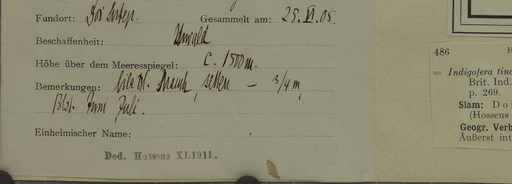 Fundort: Doi Sutep. Gesammelt am: 25. VI. 05.
Beschaffenheit: Urwald
Höhe über dem Meeresspiegel: c. 1500 m.
Bemerkungen: Strauch, selten — 3/4 m,
Blzt. Juni Juli.
Einheimischer Name:
Ded. Hosseus XI.1911.
486 H
= Indigofera tinc
Brit. Ind.
p. 269.
Siam: Doi
(Hosseus
Geogr. Verb
Äußerst int